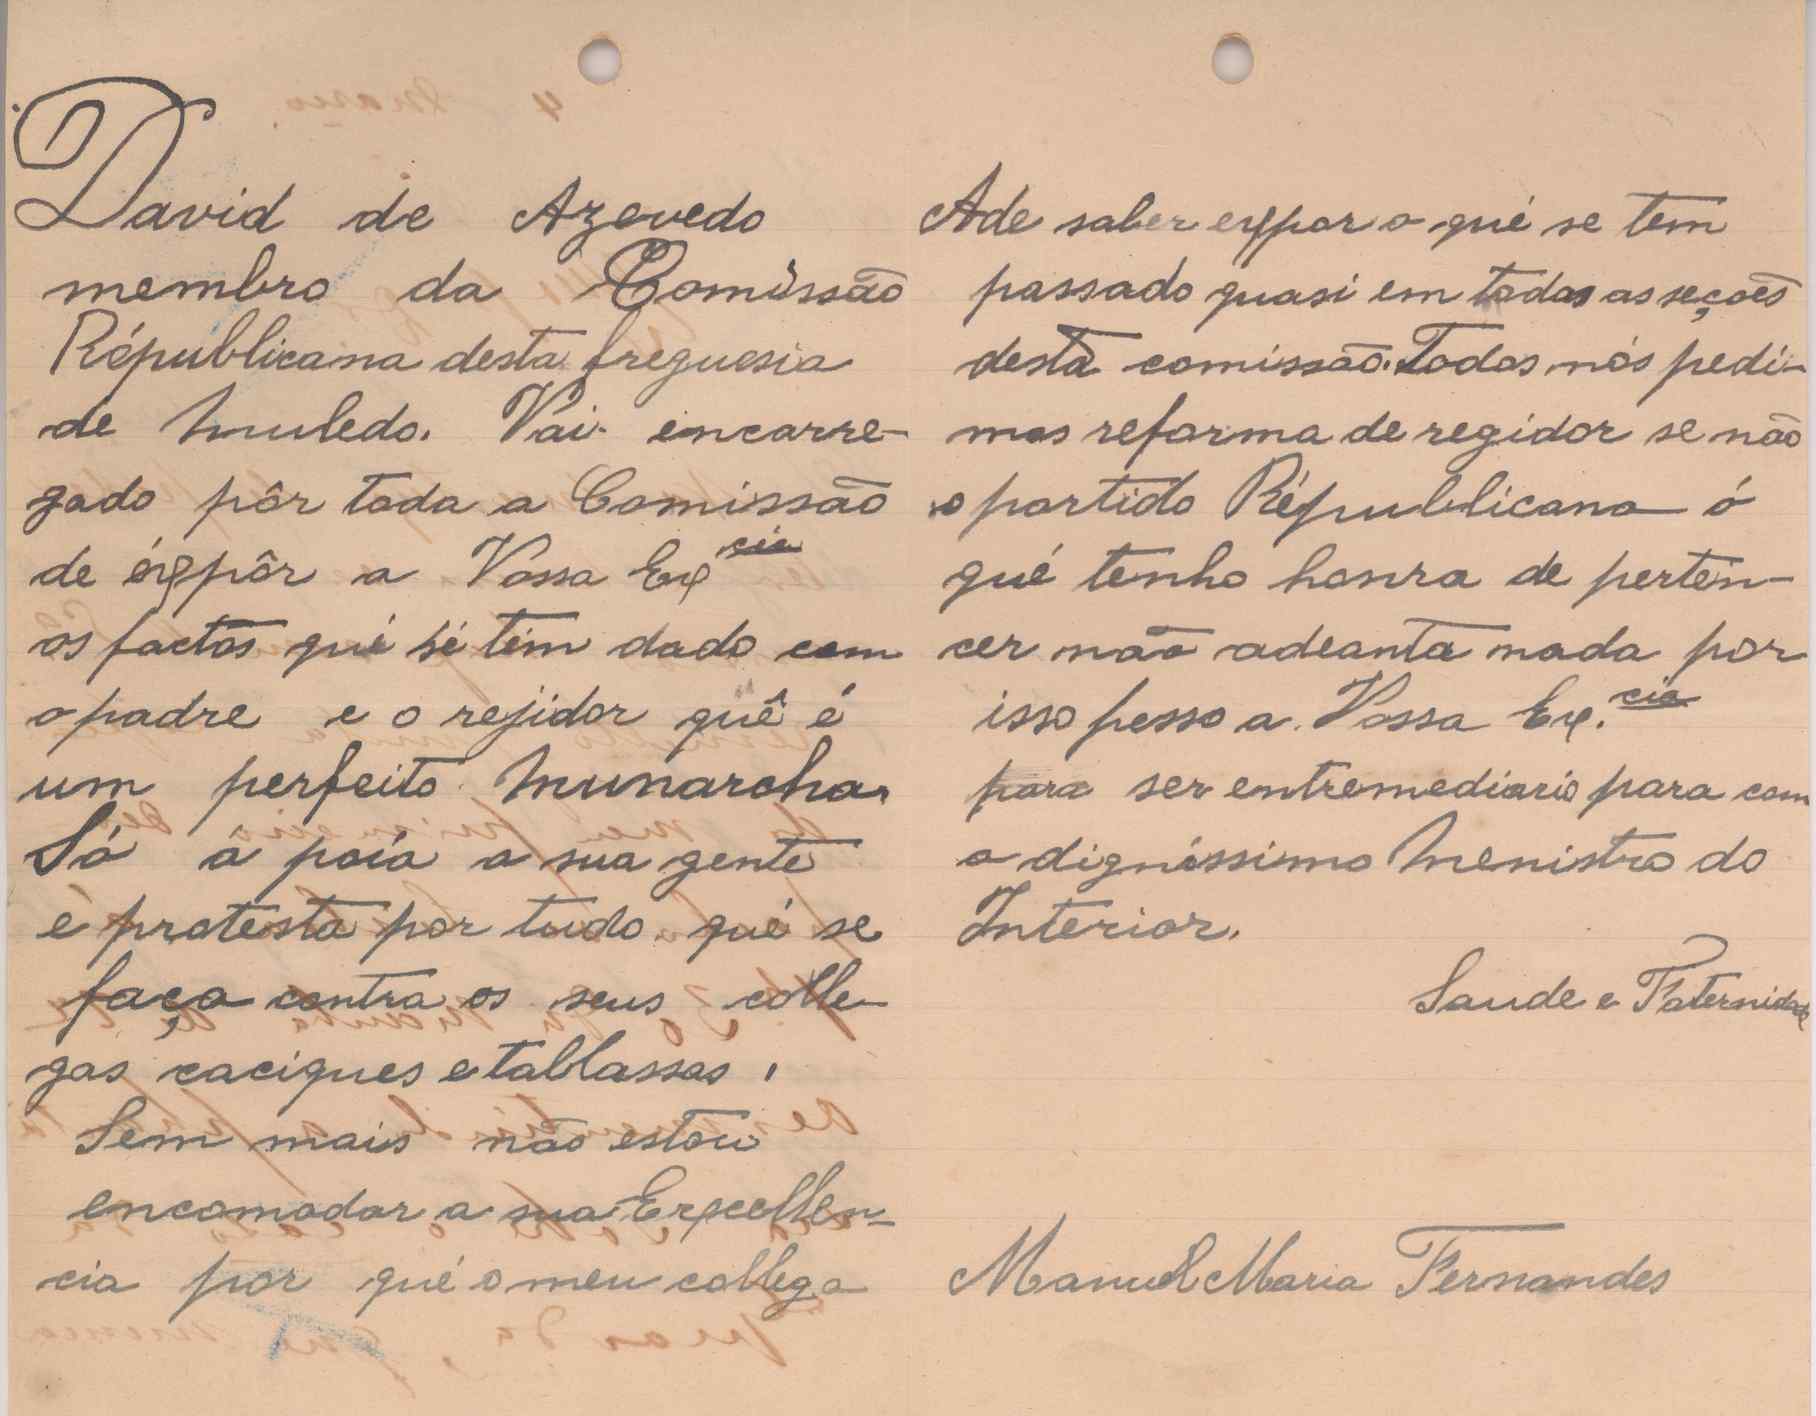 David de Azevedo
membro da Comissão
Républicana desta freguesia
de Muledo. Vai encarre-
gado pôr toda a Comissão
de éxpôr a Vossa Exᶜⁱᵃ
os factos qué sé tém dado com
o padre e o rejidor quê é
um perfeito Munarcha.
Só à poia a sua gente
e protesta por tudo qué se
faça contra os seus colle-
gas caciques e tablassas.
Sem mais não estou
encomodar a sua Excellen-
cia por qué o meu collega
Ade saber expor o qué se tem
passado quasi em todas as seçoẽs
desta comissão. Todos nós pedi-
mos reforma de regidor se não
o partido Républicano ó
qué tenho honra de perten-
cer não adeanta nada por
isso pesso a Vossa Ex.ᶜⁱᵃ
para ser entremediario para com
o digníssimo Menistro do
Interior.
Saude e Faternidade
Manuel Maria Fernandes